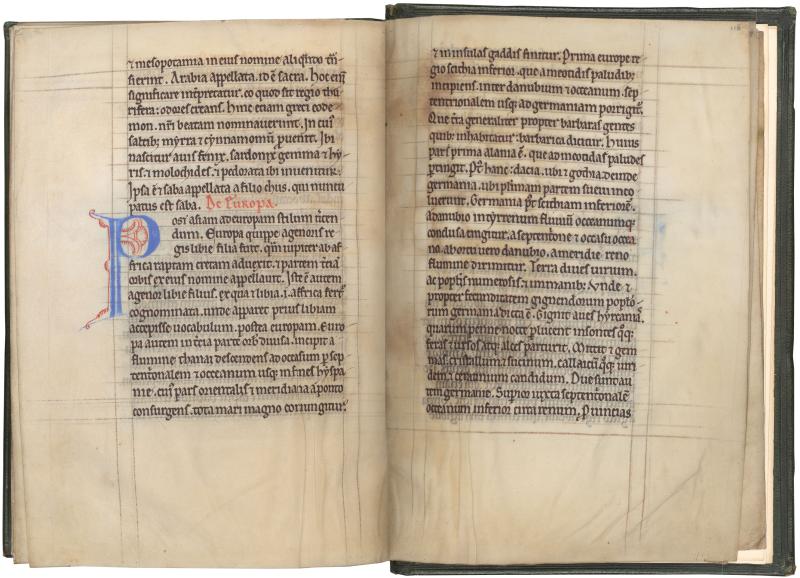 ⁊ mesopotamia in eius nomine aliqͥdo tn̄
fierint. Arabia appellata. id ē sacra. Hoc eni̅
significare int̅pretatur. eo quod sit regio thu
rifera: odores creans. Hinc etiam greci eode
mon. nr̄i beatam nominauerunt. In cuiꝰ
saltibꝫ mirra ⁊ cynnamomū ꝓuenit. Ibi
nascitur auis fenix. sardonyx gemma ⁊ hy-
ris ⁊ molochides. ⁊ pedorata ibi inuenitur.
Ipsa ē ⁊ saba appellata a filio chus. qui nuncu
patus est saba. De Europa.
Post asiam ad europam stilum uͭten
dum. Europa quippe agenoris re
gis libie filia fuit. qm̄ iupiter ab af
frica raptam cretam aduexit. ⁊ partem t̅ciā
orbis ex eius nomine appellauit. Iste ē autem
agenor libie filius. ex qua ⁊ libia. i. affrica fert̉
cognominata. unde apparet prius libiam
accepisse uocabulum. postea europam. Euro
pa autem in t̅cia parte orbͥ diuisa. incipit a
flumine thanai descendens ad occasum ꝑ sep
tentͥonalem ⁊ occeanum usqꝫ in fines hyspa
nie. cuiꝰ pars orientalis ⁊ meridiana a ponto
consurgens. tota mari magno coniungitur.
⁊ in insulas gaddis finitur. Prima europe re
gio scithia inferior. que a meotidis paludibꝫ
incipiens. inter danubium ⁊ occeanum. sep
tentrionalem usqꝫ ad germaniam porrigit̉.
Que t̅ra generaliter propter barbaras gentes
quibꝫ inhabitatur: barbarica dicitur. Huius
pars prima alania ē. que ad meotidas paludes
ꝑtingit. Pꝰt hanc: dacia. ubi ⁊ gothia. deinde
germania. ubi pͥmam partem sueui inco
luerunt. Germania pꝰt scithiam inferiorē.
a danubio int̅ renum fluuiū occeanumqꝫ
conclusa cingitur. a septentͥone ⁊ occasu occea
no. ab ortu uero danubio. a meridie reno
flumine dirimitur. Terra diues uirum.
ac popĺis numerosis ⁊ immanibꝫ. Vnde ⁊
propter fecunditatem gignendorum popĺo-
rum germania dicta ē. Gignit aues hyrcaniaˢ.
quarum penne nocte plucent. insontes qͦqꝫ
feras ⁊ ursos atqꝫ alces parturit. Mittit ⁊ gem
mas. cristallum ⁊ sucinum. callaicū qͦqꝫ uiri
dem ⁊ ceraunium candidum. Due sunt au
tem germanie. Suꝑior iuxta septentͥonalē
occeanum. inferior circa renum. Prouincias